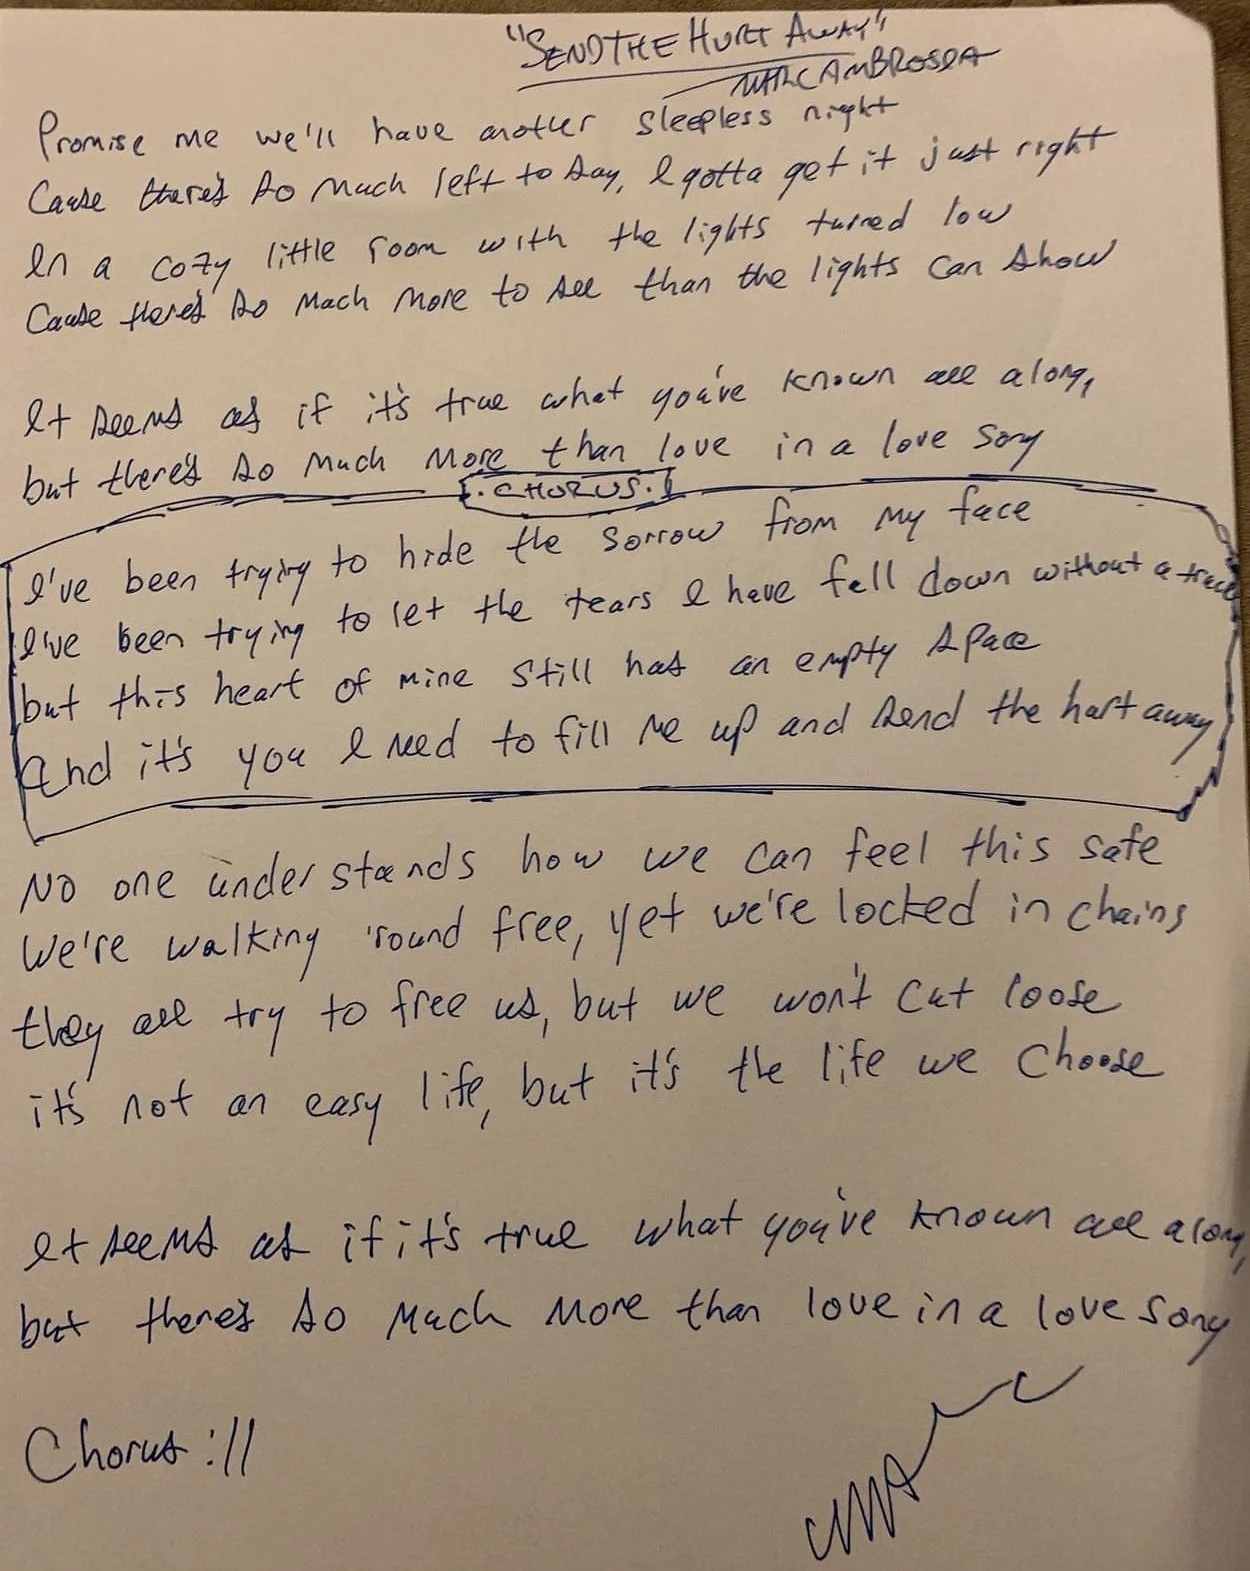 "SEND THE HURT AWAY"
MARC AMBROSIA
Promise me we'll have another sleepless night
Cause there's so much left to say, I gotta get it just right
In a cozy little room with the lights turned low
Cause there's so much more to see than the lights can show
It seems as if it's true what you've known all along,
but there's so much more than love in a love song
. CHORUS .
I've been trying to hide the sorrow from my face
I've been trying to let the tears I have fall down without a trace
but this heart of mine still has an empty space
And it's you I need to fill me up and send the hurt away
No one understands how we can feel this safe
We're walking 'round free, yet we're locked in chains
they all try to free us, but we won't cut loose
it's not an easy life, but it's the life we choose
It seems as if it's true what you've known all along,
but there's so much more than love in a love song
Chorus ://